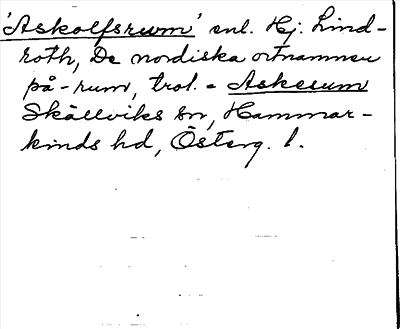 'Askolfsrum' enl. Hj. Lind-
roth, De nordiska ortnamnen
på -rum, trol. = Askerum
Skällviks sn, Hammar-
kinds hd, Österg. l.